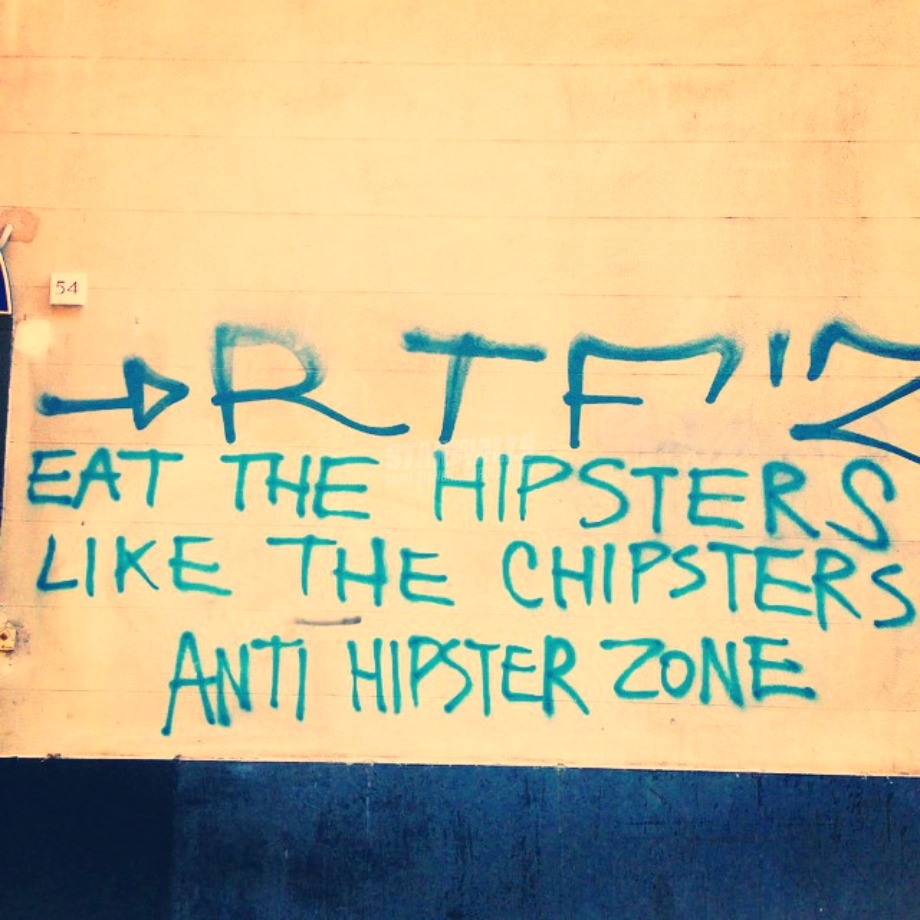 54
RTF'Z
EAT THE HIPSTERS
LIKE THE CHIPSTERS
ANTI HIPSTER ZONE